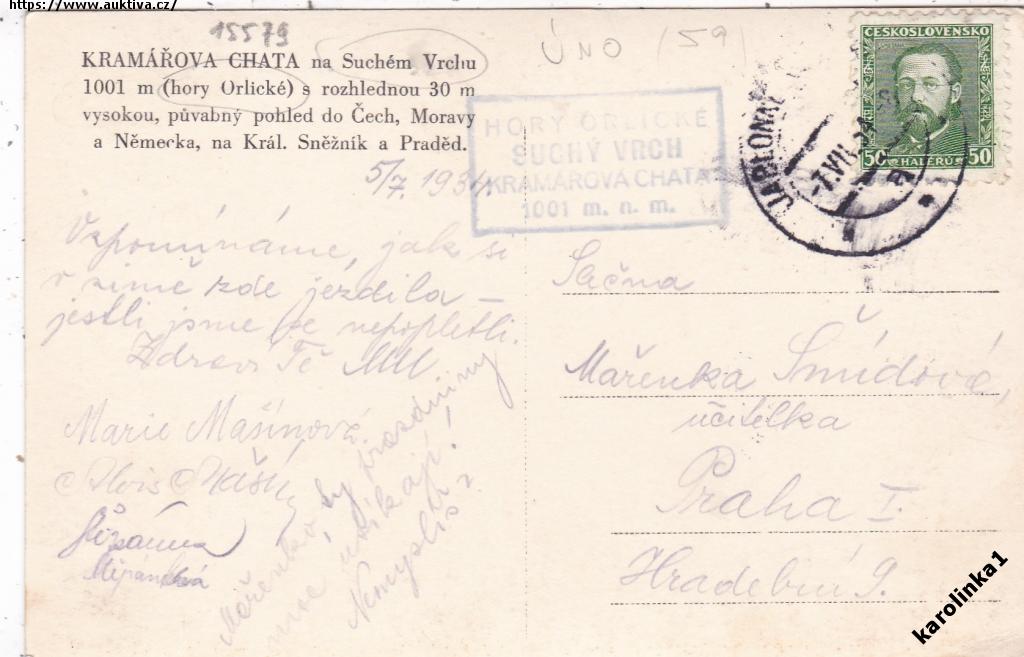 https://www.auktiva.cz/
15579
KRAMÁŘOVA CHATA na Suchém Vrchu
1001 m (hory Orlické) s rozhlednou 30 m
vysokou, půvabný pohled do Čech, Moravy
a Německa, na Král. Sněžník a Praděd.
ÚNO (59)
HORY ORLICKÉ
SUCHÝ VRCH
KRAMÁŘOVA CHATA
1001 m. n. m.
ČESKOSLOVENSKO
50 HALÉŘŮ 50
JABLONNÉ
-7.VII.34
5/7 1934
Vzpomínáme, jak si
v zimě zde jezdila –
jestli jsme se nepopletli.
Zdraví Tě
Marie Mašínová
Alois
Štěpánková
Mařenko, ty prázdniny
utíkají!
Nemyslíš?
Slečna
Mařenka Šmídová,
učitelka
Praha I.
Hradební 9.
karolinka1